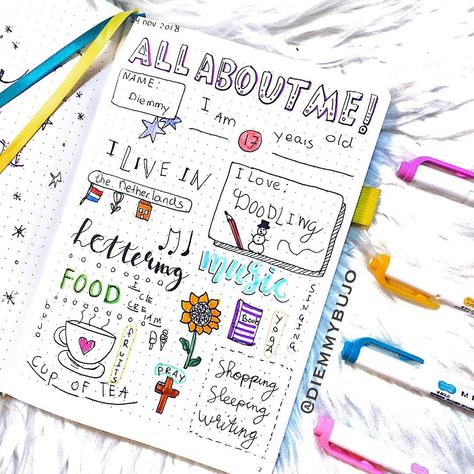 4 nov 2018
ALL ABOUT ME!
NAME:
Diemmy
I am 17 years old
I LIVE IN
the Netherlands
I Love:
DOODLING
lettering
music
FOOD
ICE
CREAM
FRUITS
Book
YOGA
SINGING
CUP OF TEA
PRAY
Shopping
Sleeping
Writing
@DIEMMYBUJO